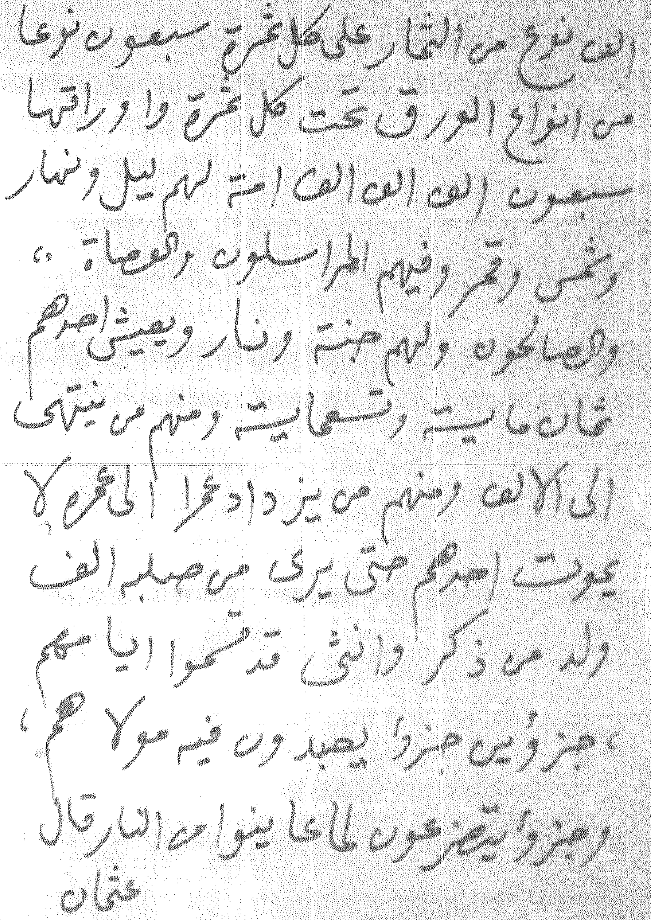 الف نوع من الثمار على كل ثمرة سبعون نوعا
من انواع الورق تحت كل ثمرة واوراقها
سبعون الف الف الف امة لهم ليل ونهار
وشمس وقمر وفيهم المراسلون والعصاة ،،
والصالحون ولهم جنة ونار ويعيش احدهم
ثمان ماية وتسعماية ومنهم من ينتهى
الى الالف ومنهم من يزداد عمرا الى عمره لا
يموت احدهم حتى يرى من صلبه الف
ولد من ذكر وانثى قد قسموا ايامهم
، جزؤين جزوأ يعبدون فيه مولاهم ،
وجزوأ يتضرعون لما عاينوا من النار قال
عثمان